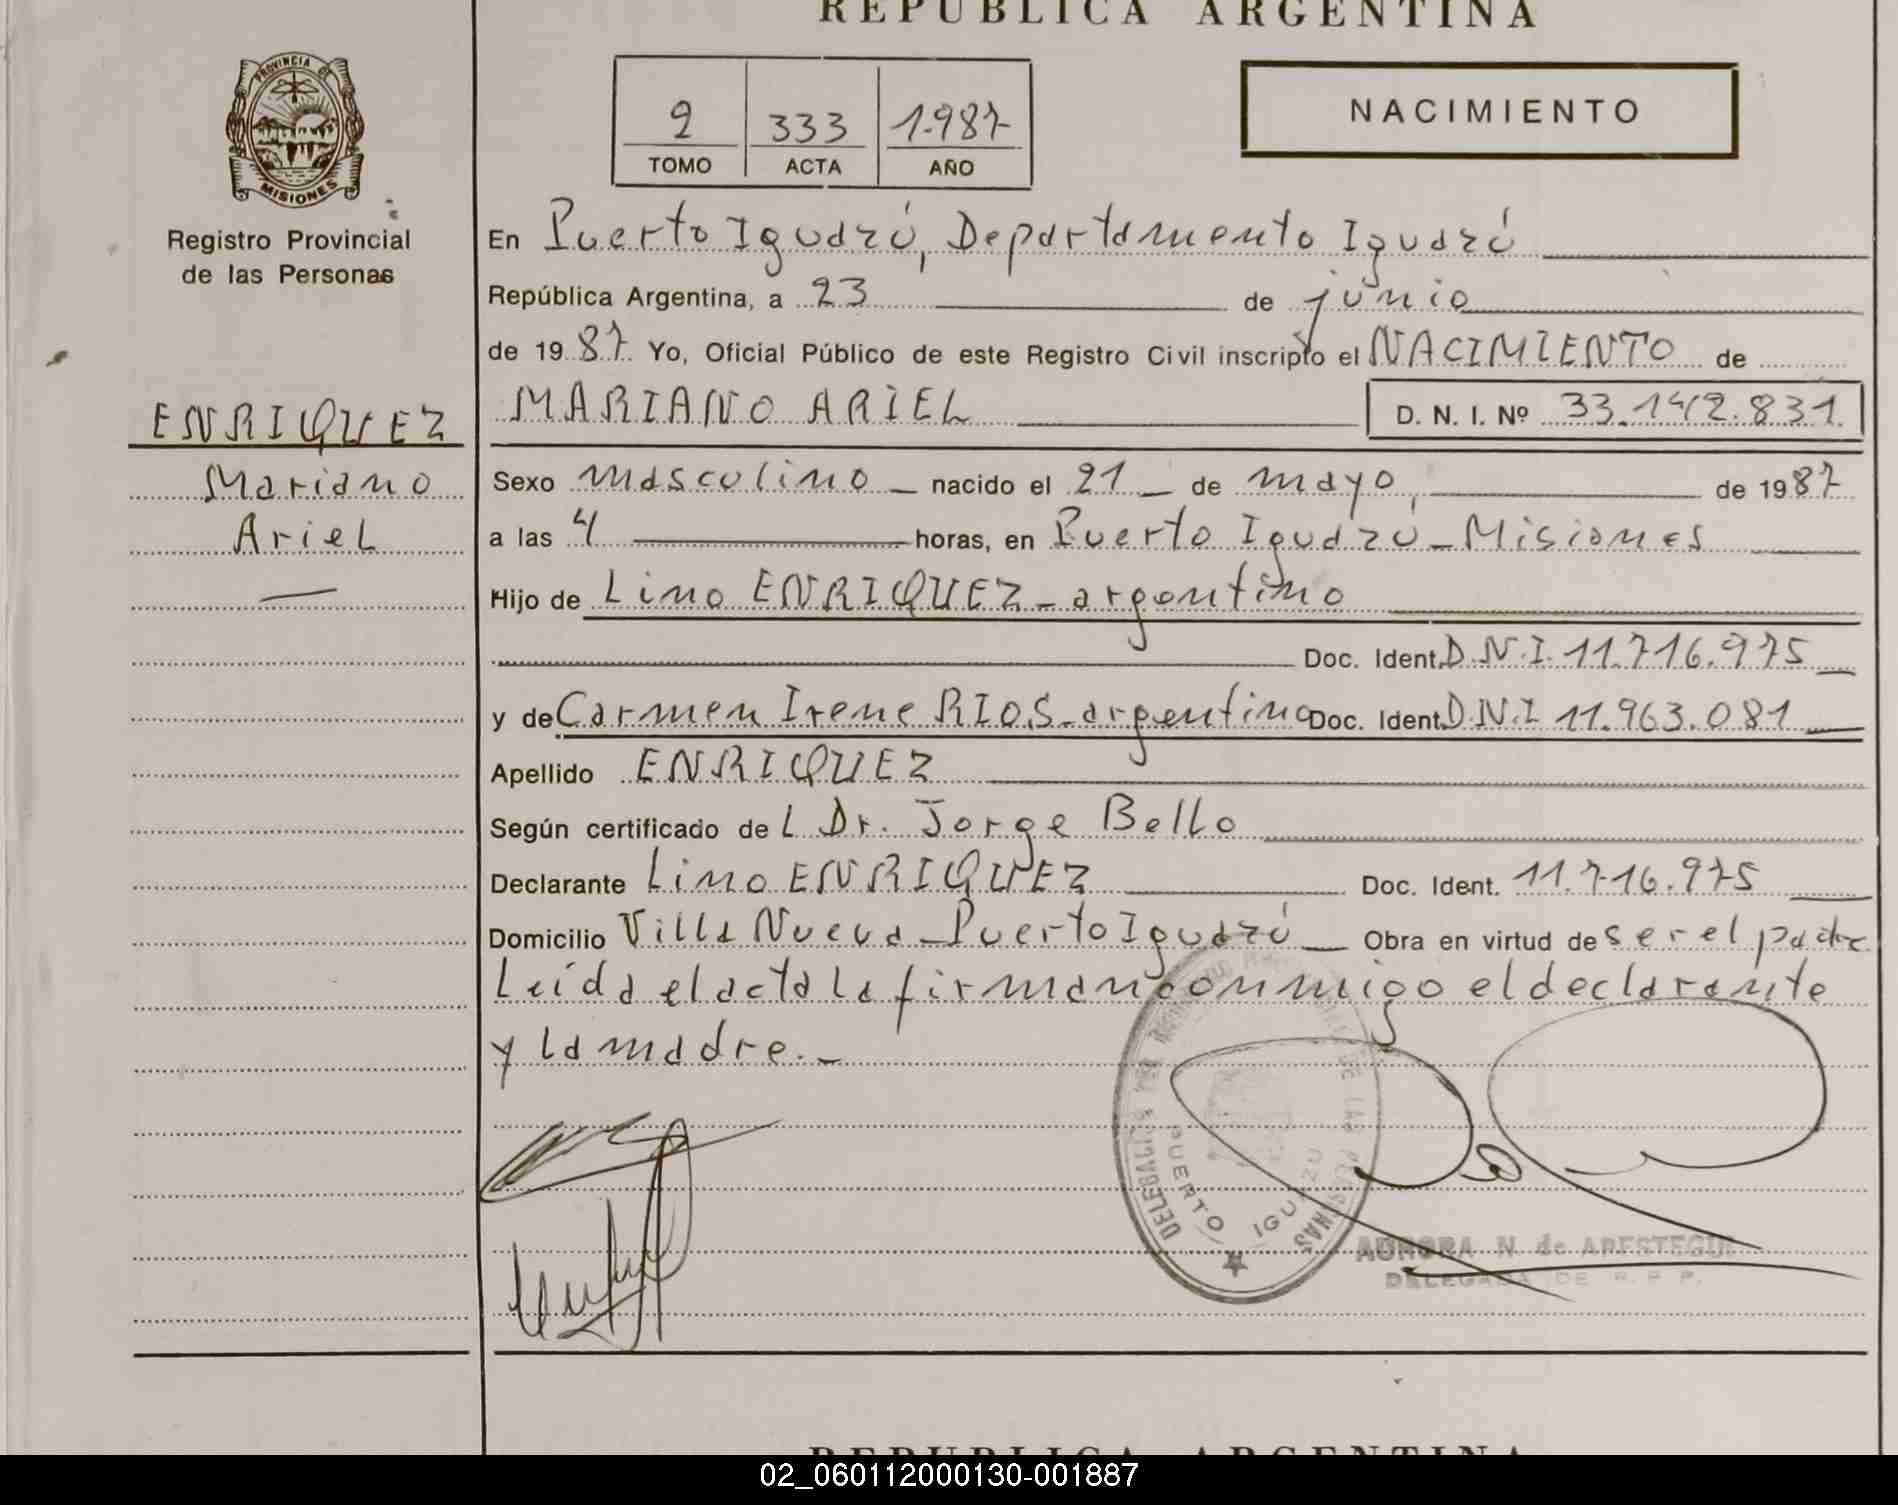 REPUBLICA ARGENTINA
PROVINCIA DE
MISIONES
Registro Provincial
de las Personas
2 333 1.987
TOMO ACTA AÑO
NACIMIENTO
En Puerto Iguazú, Departamento Iguazú
República Argentina, a 23 de junio
de 1987 Yo, Oficial Público de este Registro Civil inscripto el NACIMIENTO de
ENRIQUEZ
MARIANO ARIEL D. N. I. Nº 33.142.831
Mariano
Sexo masculino nacido el 21 de mayo, de 1987
Ariel
a las 4 horas, en Puerto Iguazú - Misiones
Hijo de Lino ENRIQUEZ - argentino
Doc. Ident. D.N.I. 11.716.975
y de Carmen Irene RIOS - argentina Doc. Ident. D.N.I 11.963.081
Apellido ENRIQUEZ
Según certificado de L Dr. Jorge Bello
Declarante Lino ENRIQUEZ Doc. Ident. 11.716.975
Domicilio Villa Nueva - Puerto Iguazú Obra en virtud de ser el padre
Leída el acta la firman conmigo el declarante
y la madre.-
DELEGACION DE LAS PERSONAS
PUERTO IGUAZU
AURORA N de APESTEGUI
DELEGADA DE R. P. P.
REPUBLICA ARGENTINA
02_060112000130-001887